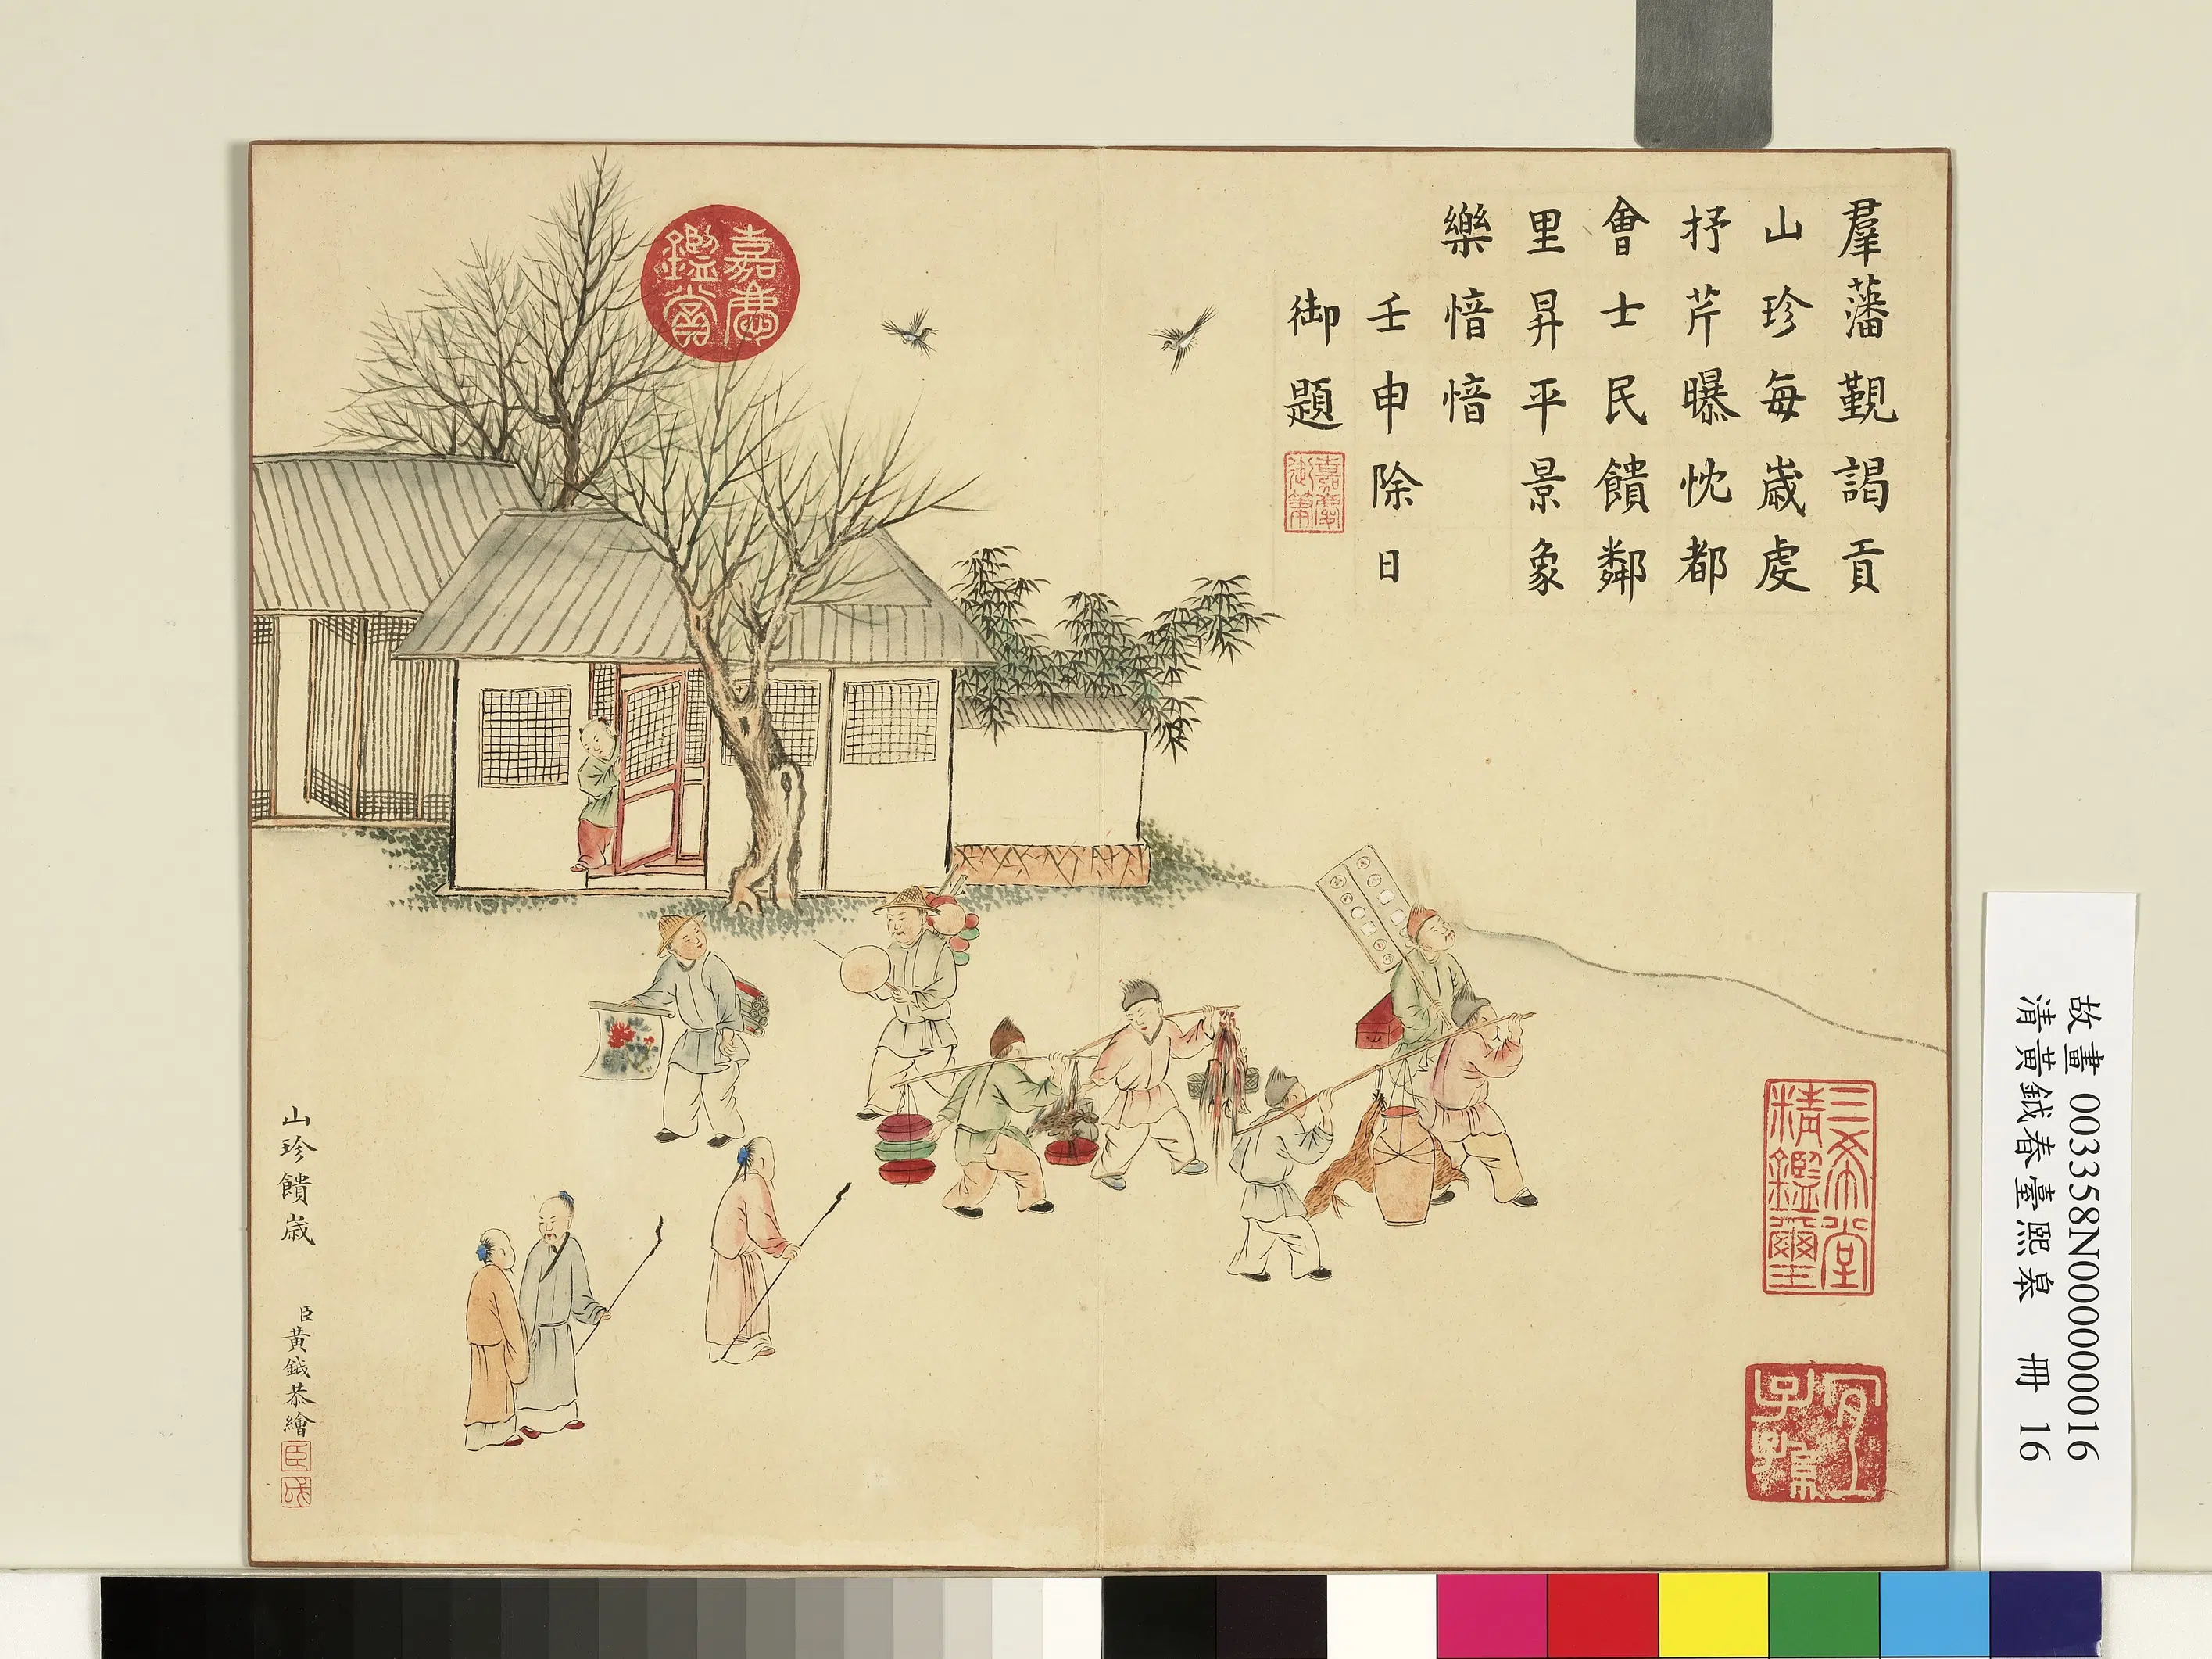 羣藩覲謁貢
山珍每歲虔
抒芹曝忱都
會士民饋鄰
里昇平景象
樂愔愔
壬申除日
御題
嘉慶
御筆
嘉慶
鑑賞
三希堂
精鑑璽
宜
子孫
山珍饋歲
臣黃鉞恭繪
臣
鉞
故畫 003358N000000016
清黃鉞春臺熙皞 冊 16